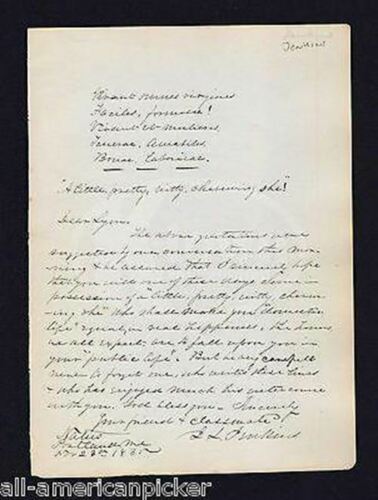 Vivant omnes virgines
Faciles, formosae!
Vivant et mulieres
Tenerae, Amabiles
Bonae, Laboriosae.
"A little, pretty, witty, charming she"!
Dear Lyon
The above quotations were
suggested by our conversation this mor-
ning & be assured that I sincerely hope
that you will one of these days come in
possession of a "little, pretty, witty, charm-
ing, she" who shall make your "domestic
life" equal, in real happiness, the
we all expect are to fall upon you in
your "public life". But be very careful
never to forget one, who writes these lines
& who has enjoyed much his intercourse
with you. God bless you - Sincerely
Your friend & classmate
Portland, Me
1865
all-americanpicker